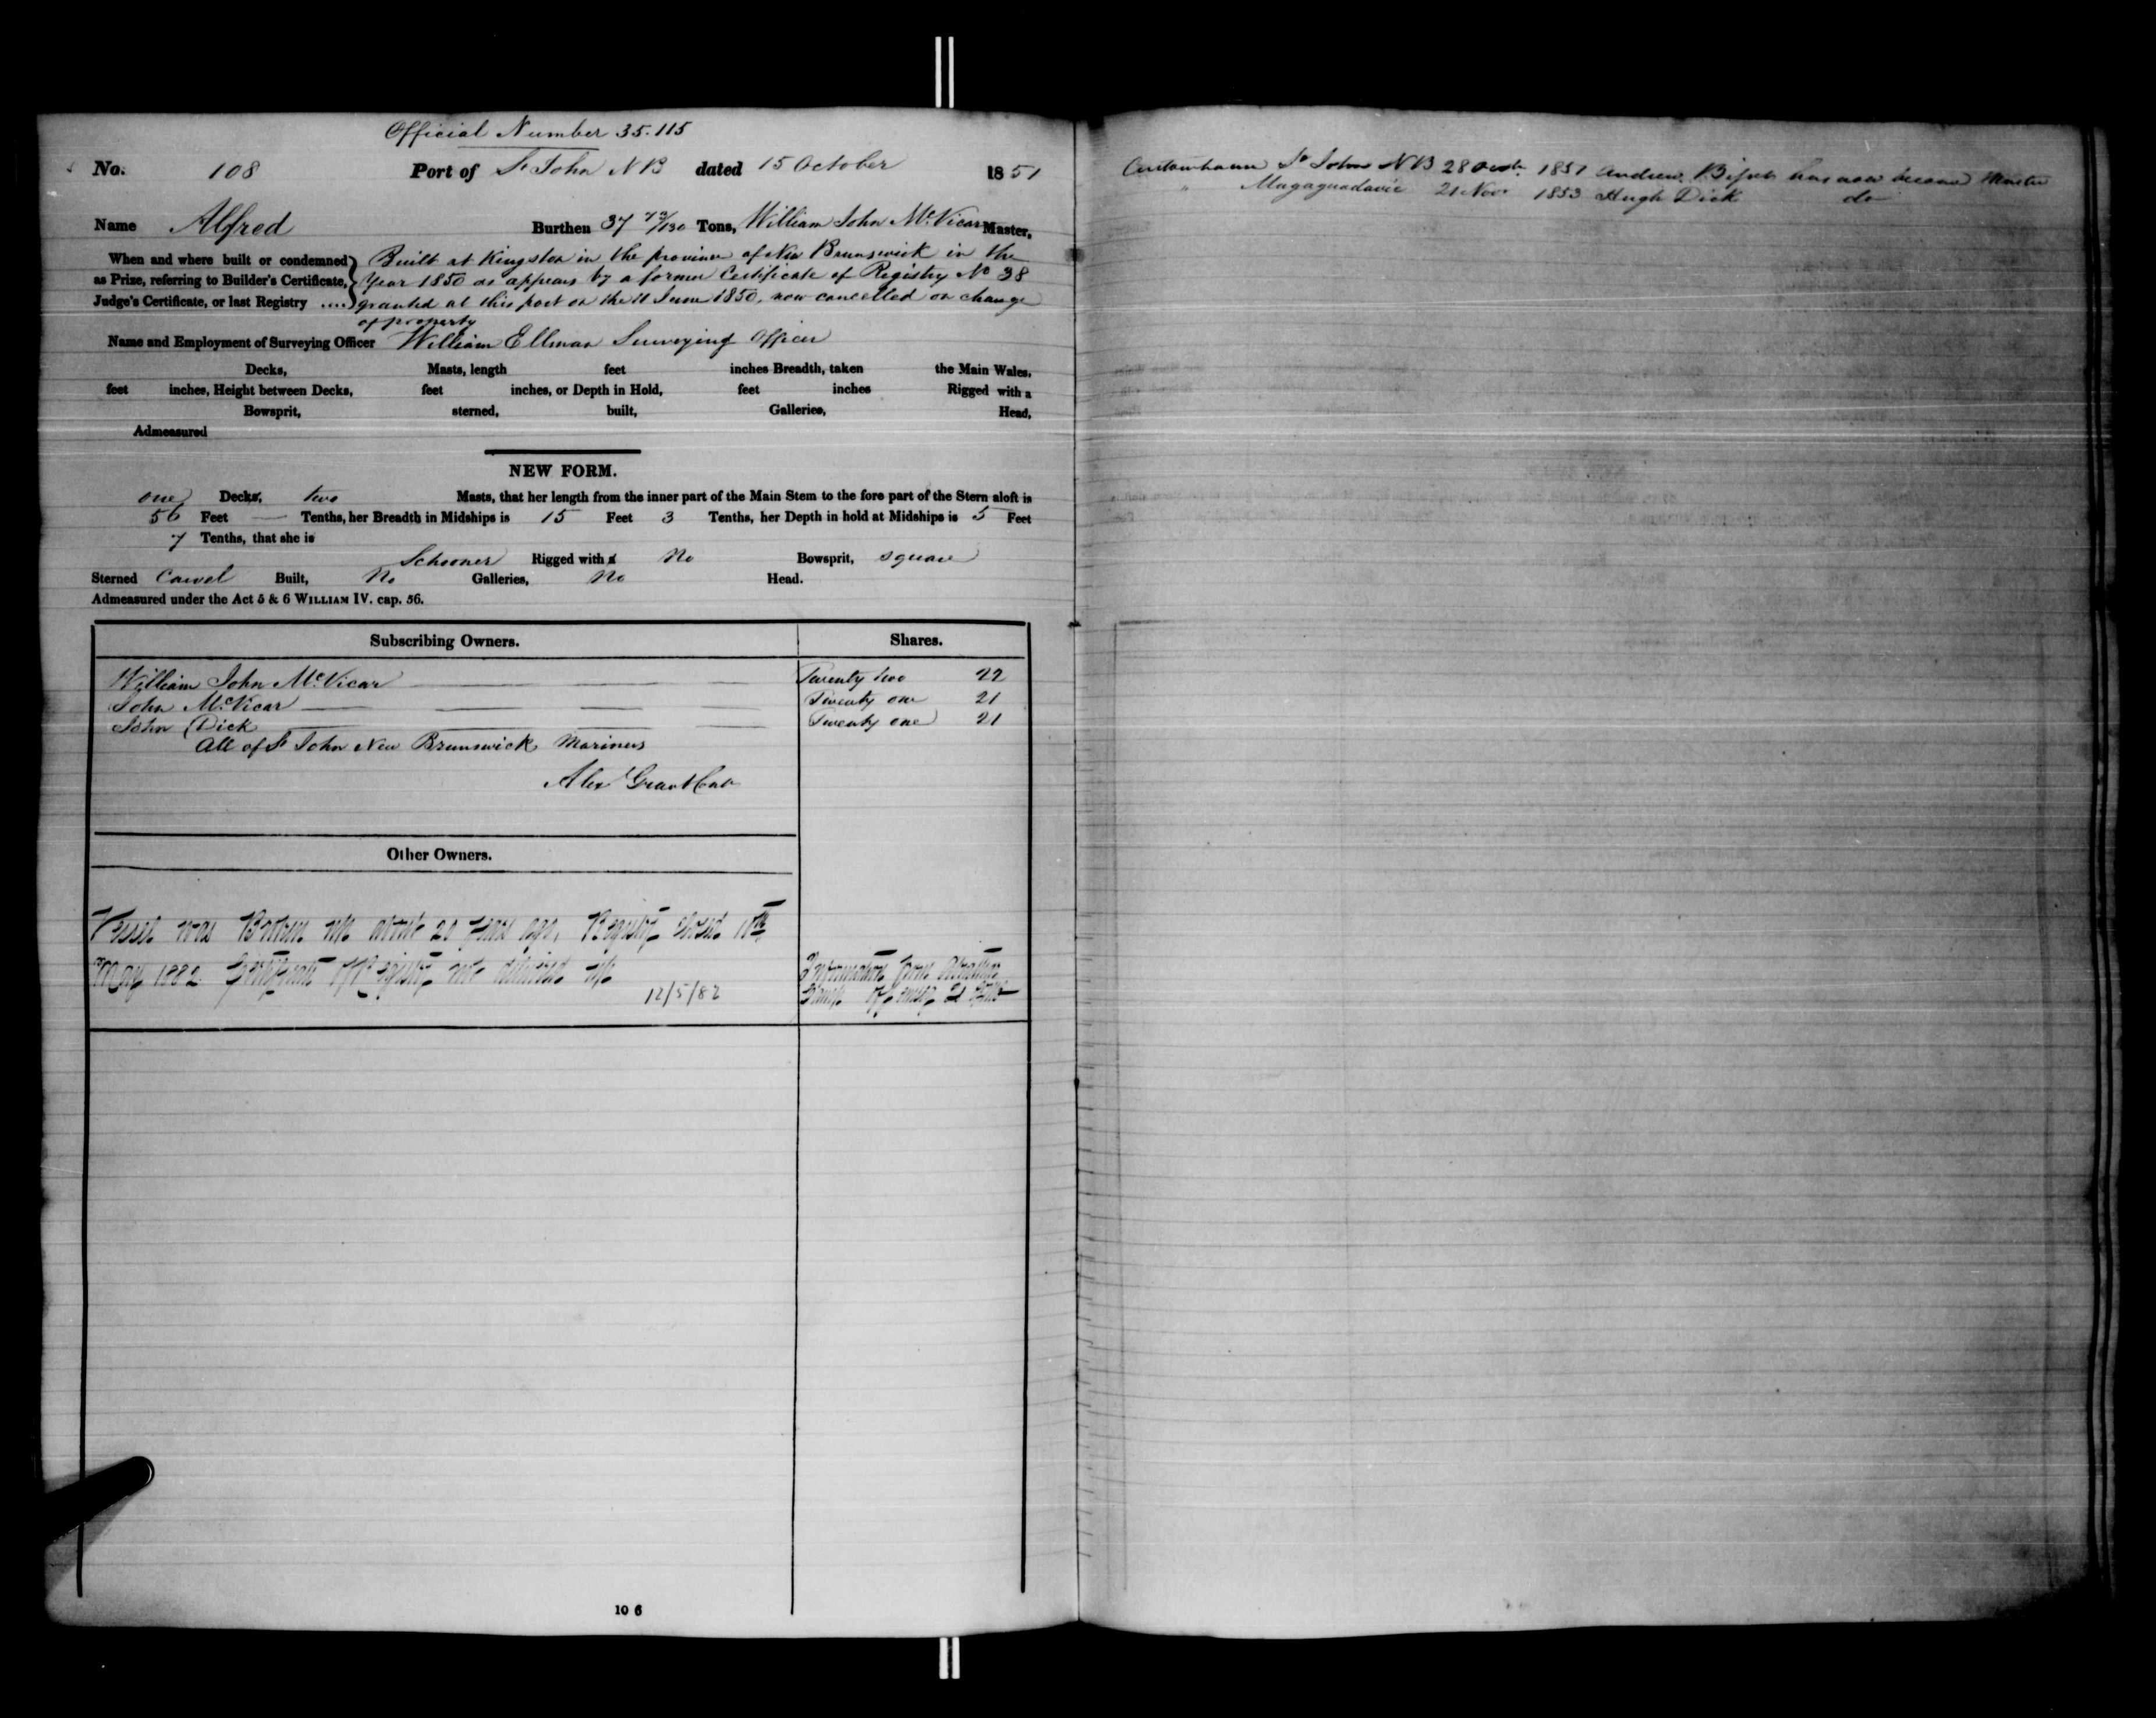 Official Number 35.115
No. 108 Port of St John NB dated 15 October 1851
Name Alfred Burthen 37 Tons, William John McVicar Master,
When and where built or condemned as Prize, referring to Builder's Certificate, Judge's Certificate, or last Registry ....
Built at Kingston in the province of New Brunswick in the
Year 1850 as appears by a former Certificate of Registry No 38
granted at this port on the 11 June 1850, now cancelled on change
of property
Name and Employment of Surveying Officer William Ellman Surveying Officer
Decks, Masts, length feet inches Breadth, taken the Main Wales,
feet inches, Height between Decks, feet inches, or Depth in Hold, feet inches Rigged with a
Bowsprit, sterned, built, Galleries, Head,
Admeasured
NEW FORM.
one Decks, two Masts, that her length from the inner part of the Main Stem to the fore part of the Stern aloft is
56 Feet — Tenths, her Breadth in Midships is 15 Feet 3 Tenths, her Depth in hold at Midships is 5 Feet
7 Tenths, that she is
Schooner Rigged with a No Bowsprit, square
Sterned Carvel Built, No Galleries, No Head.
Admeasured under the Act 5 & 6 WILLIAM IV. cap. 56.
Subscribing Owners. Shares.
William John McVicar Twenty two 22
John McVicar Twenty one 21
John Dick Twenty one 21
All of St John New Brunswick Mariners
Alex Grant
Other Owners.
Vessel was Broken up about 20 years ago, Registry closed 10th
May 1882 Certificate of Registry not delivered up
12/5/82
Information from
106
Customhouse St John NB 28 1851 Andrew has now become Master
" Magaguadavic 21 Nov 1853 Hugh Dick do